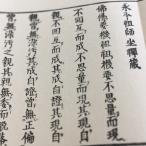 永平祖師坐禪箴
佛佛要機祖祖機要不思量而現
不回互而成不思量而現其現自
親不回互而成其成自證其現自
親曾無染污其成自證曾無正偏
曾無染污之親其親無委而脫落